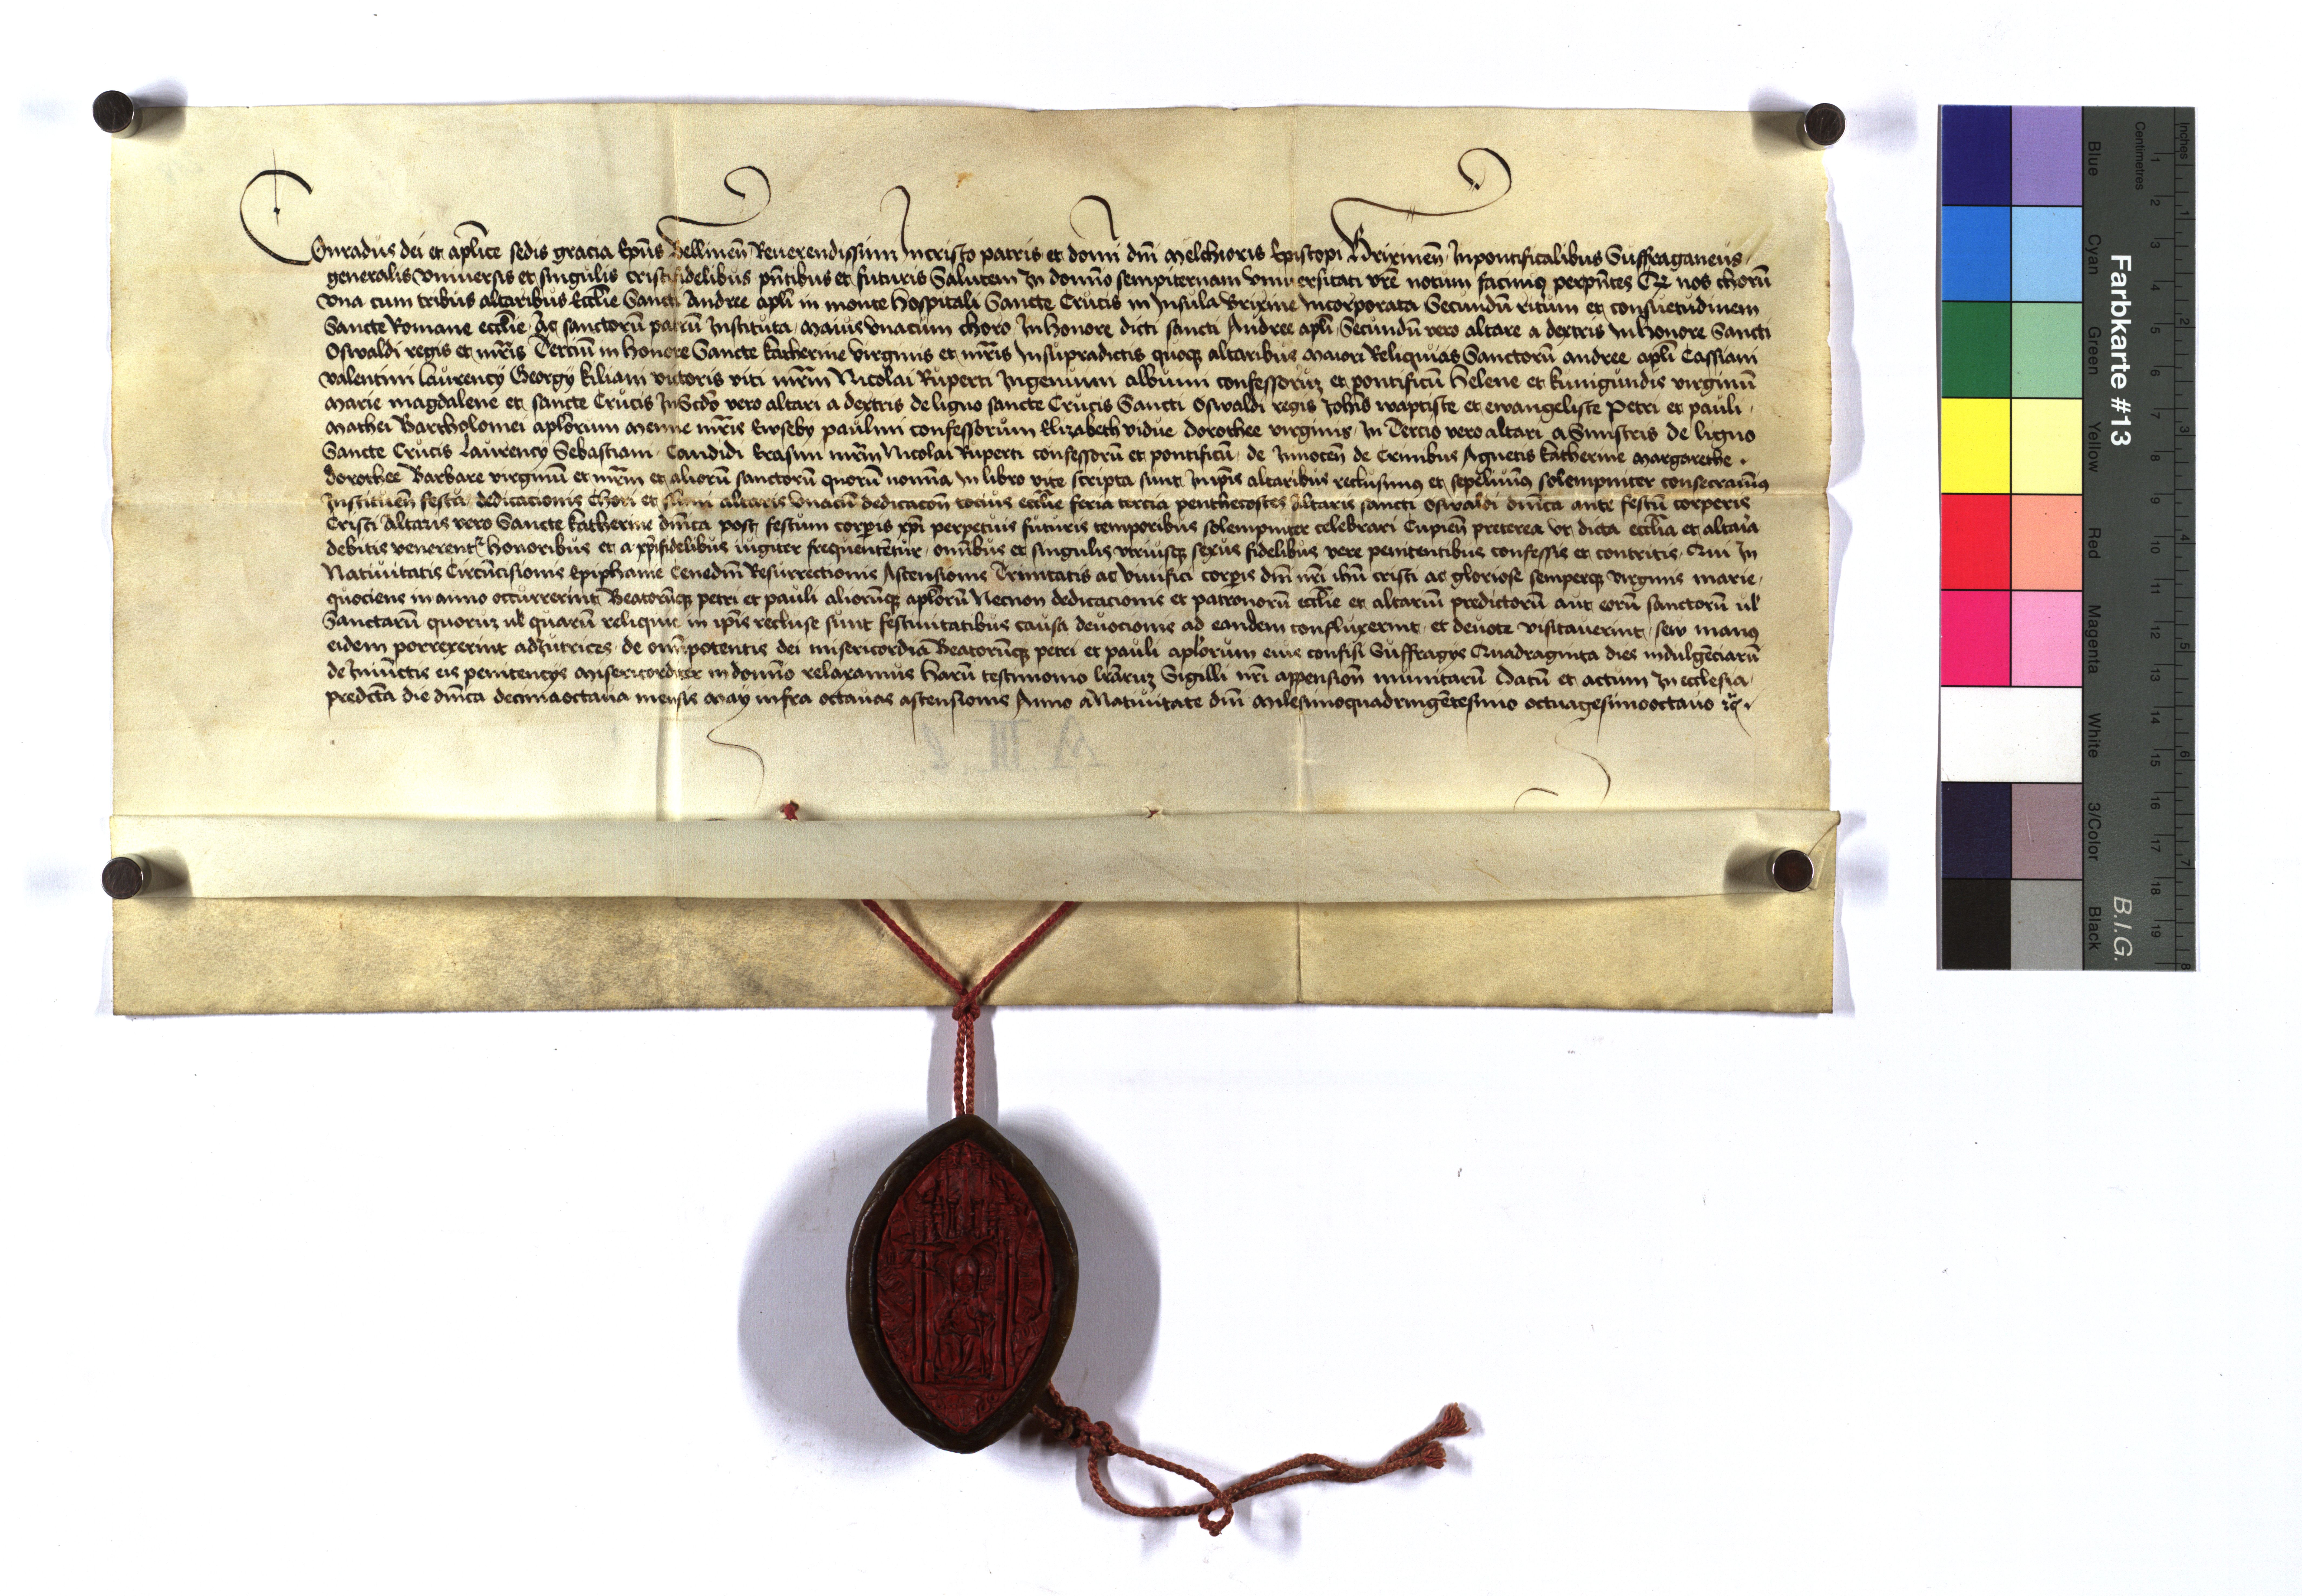 Conradus dei et aplice sedis gracia Epus Bellinen Reuerendissimi Incristo patris et domi dni Melchioris Episcopi Brixinen Inpontificalibus Suffraganeus
generalis vniuersis et singulis cristifidelibus pntibus et futuris Salutem In domno sempiternam vniuersitati vre notum facimus perpntes Qz nos chorū
vna cum tribus altaribus Ecclie Sancti Andree apli in monte Hospitali Sancte Crucis in Insula Brixine Incorporata Secundū ritum et consuetudinem
Sancte Romane ecclie Ac sanctorū patrū Instituta maius vnacum choro In Honore dicti sancti Andree apli Secundū vero altare a dextris In Honore Sancti
Oswaldi regis et mris Terciū in Honore Sancte Katherine virginis et mris Insupradictis quoqz altaribus Maiori Reliquias Sanctorū andree apli Cassiani
valentini laurency Georgy Kiliani victoris viti mrm Nicolai Ruperti Ingenuini albuini confessoruz et pontificū Helene et kunigundis virginū
Marie magdalene et sancte Crucis InScdo vero altari a dextris de ligno sancte Crucis Sancti Oswaldi regis Johis waptiste et ewangeliste Petri et pauli
Mathei Bartholomei aplorum Menne mris Ewseby paulini confessorum Elizabeth vidue dorothee virginis In Tercio vero altari a Sinistris de ligno
Sancte Crucis Laurency Sebastiani Candidi Erasmi mrm Nicolai Ruperti confessorū et pontificū de Innocen de Crinibus Agnetis Katherine Margarethe
dorothee Barbare virginū et mrm et aliorū sanctorū quorū nomina In libro vite scripta sunt Inipis altaribus reclusimus et sepeliuimus solempniter consecrauimus
Instituen festa dedicacionis Chori et sumi altaris vnacū dedicacon tocius ecclie feria tercia penthecostes Altaris sancti Oswaldi dnica ante festū corporis
Cristi Altaris vero Sancte Katherine dnica post festum corpis xpi perpetuis futuris temporibus solempniter celebrari Cupien preterea vt dicta ecclia et altaia
debitis venerent honoribus et a xpifidelibus iugiter frequententur omibus et singulis vtriusqz sexus fidelibus vere penitentibus confessis et contritis Qui In
Natiuitatis Circūcisionis Epiphanie Cenedni Resurrectionis Ascensionis Trinitatis ac viuifici corpis dni nri ihu cristi ac gloriose semperqz virginis marie
quociens in anno occurrerint Beatorūqz petri et pauli aliorūqz aplorū Necnon dedicacionis et patronorū ecclie et altariū predictorū aut eorū sanctorū ul
Sanctarū quoruz ul quarū reliquie in ipis recluse sunt festiuitatibus causa deuocionis ad eandem confluxerint et deuote visitauerint seu manus
eidem porrexerint adiutrices de omipotentis dei misericordia Beatorūqz petri et pauli aplorum eius confisi Suffragys Quadraginta dies indulgēciarū
de Iniūctis eis penitencys Misericorditer in domno relaxamus Harū testimonio lraruz Sigilli nri appension munitarū Datū et actum In ecclesia
predicta die dnica decimaoctaua mensis May infra octauas ascensionis Anno aNatiuitate dni Milesimoquadringētesimo octuagesimooctauo rc
A III
Farbkarte #13
B.I.G.
Inches
Centimetres
Blue
Cyan
Green
Yellow
Red
Magenta
White
3/Color
Black
1 2 3 4 5 6 7 8 9 10 11 12 13 14 15 16 17 18 19
1 2 3 4 5 6 7 8